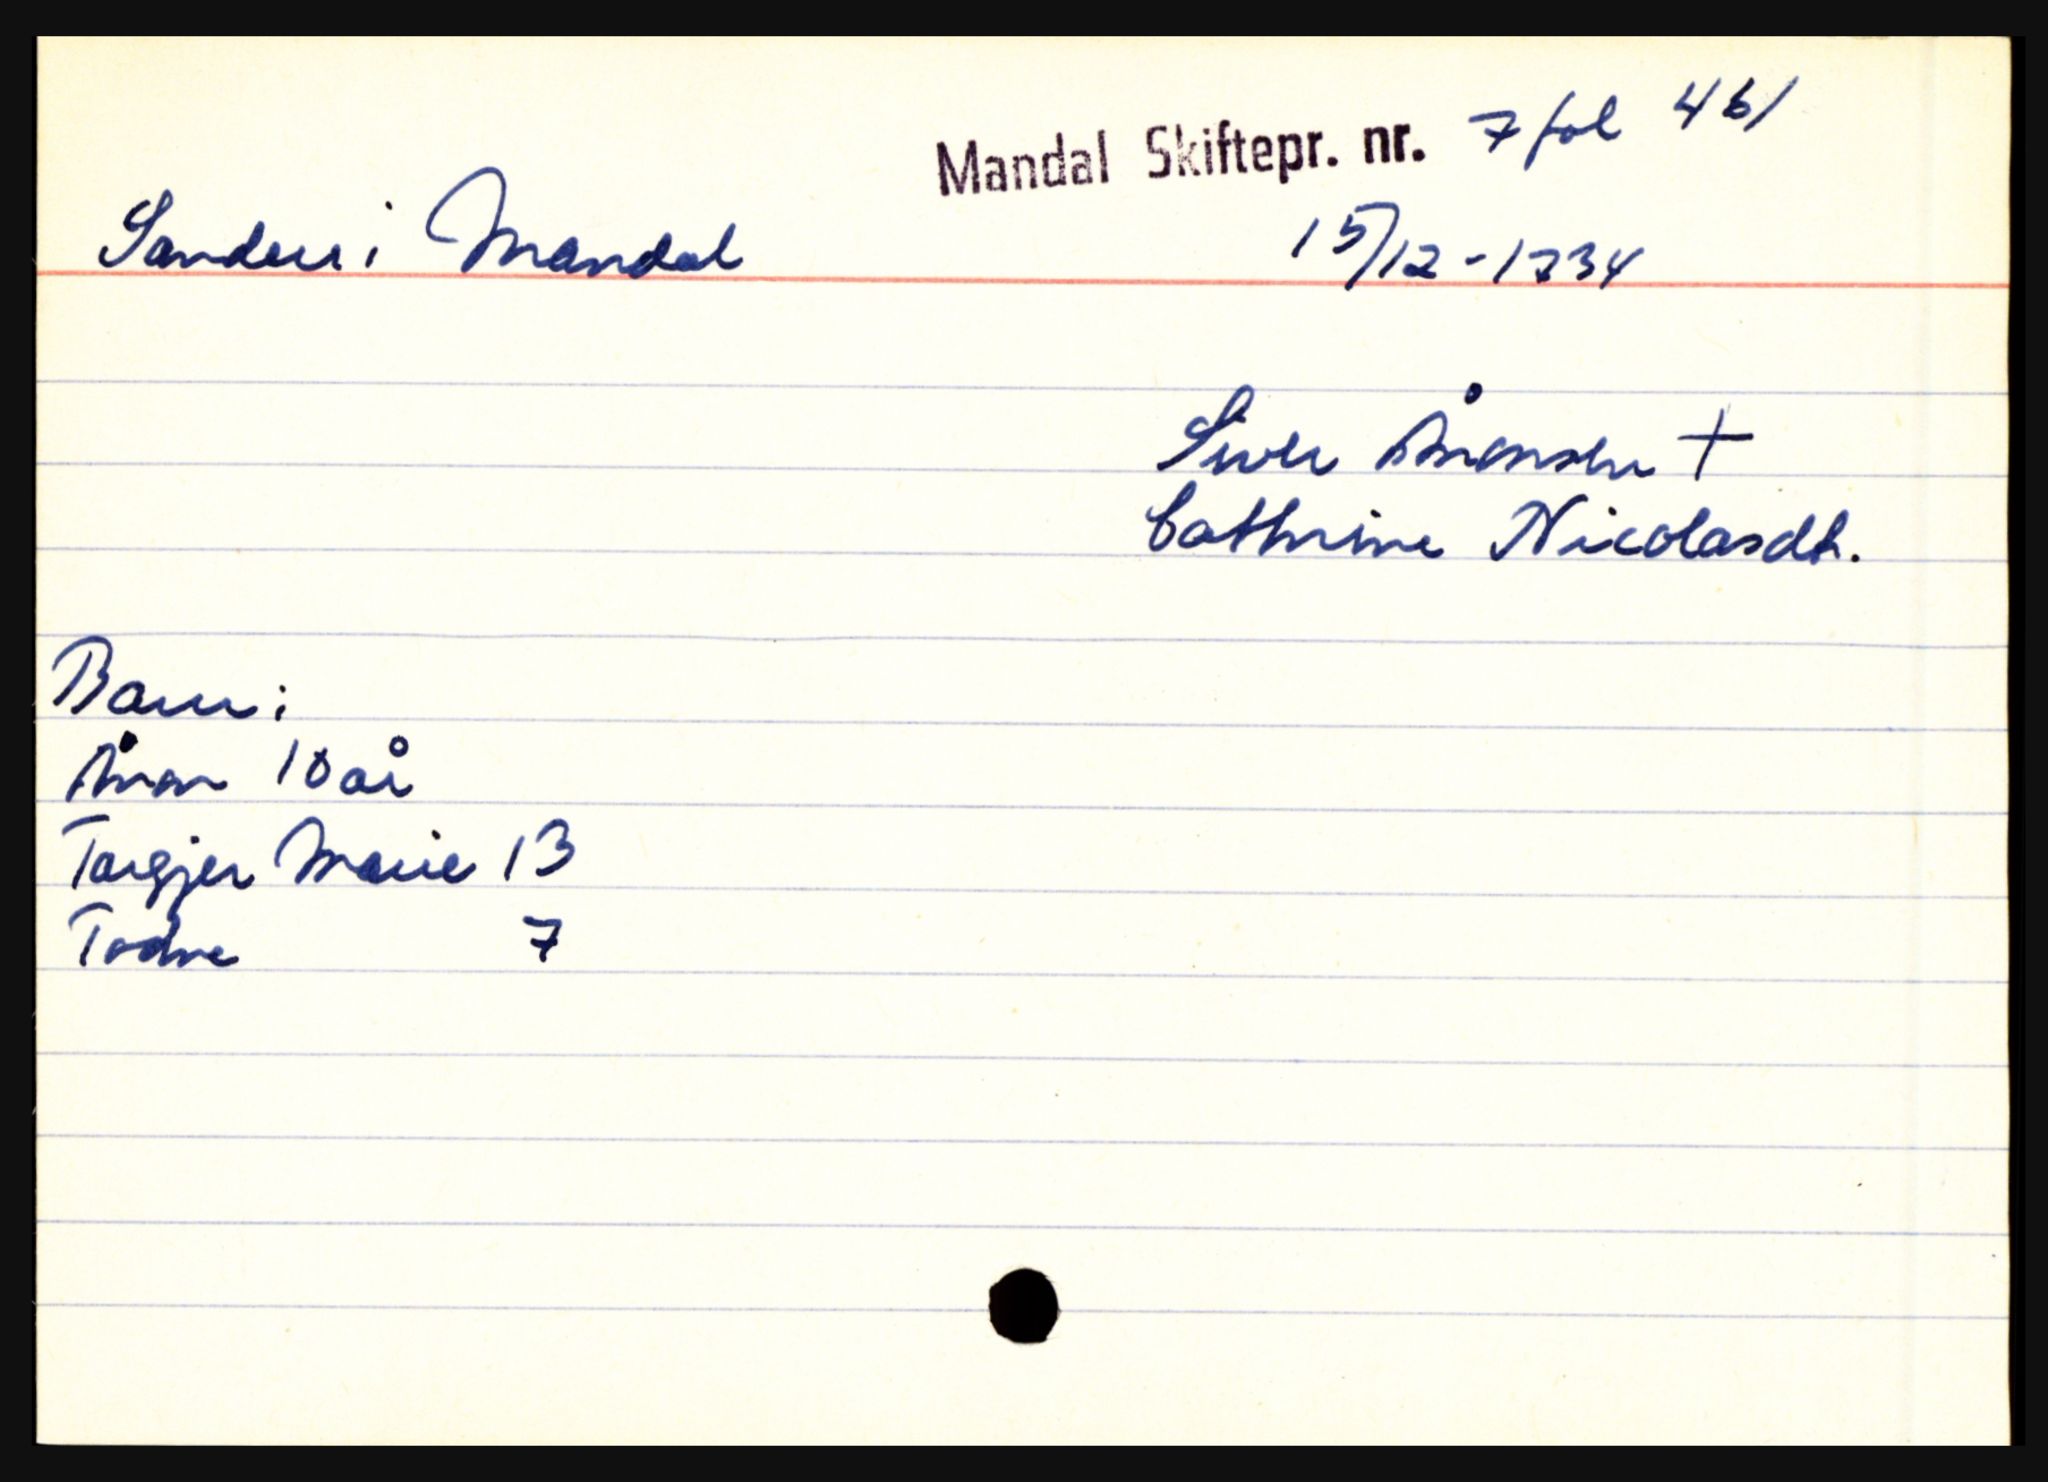 Mandal Skiftepr. nr. 7 fol 461
Sanden i Mandal 15/12-1734
Siver Ånonsen +
Cathrine Nicolasdt.
Barn:
Ånon 10 år
Targjer Marie 13
Todne 7